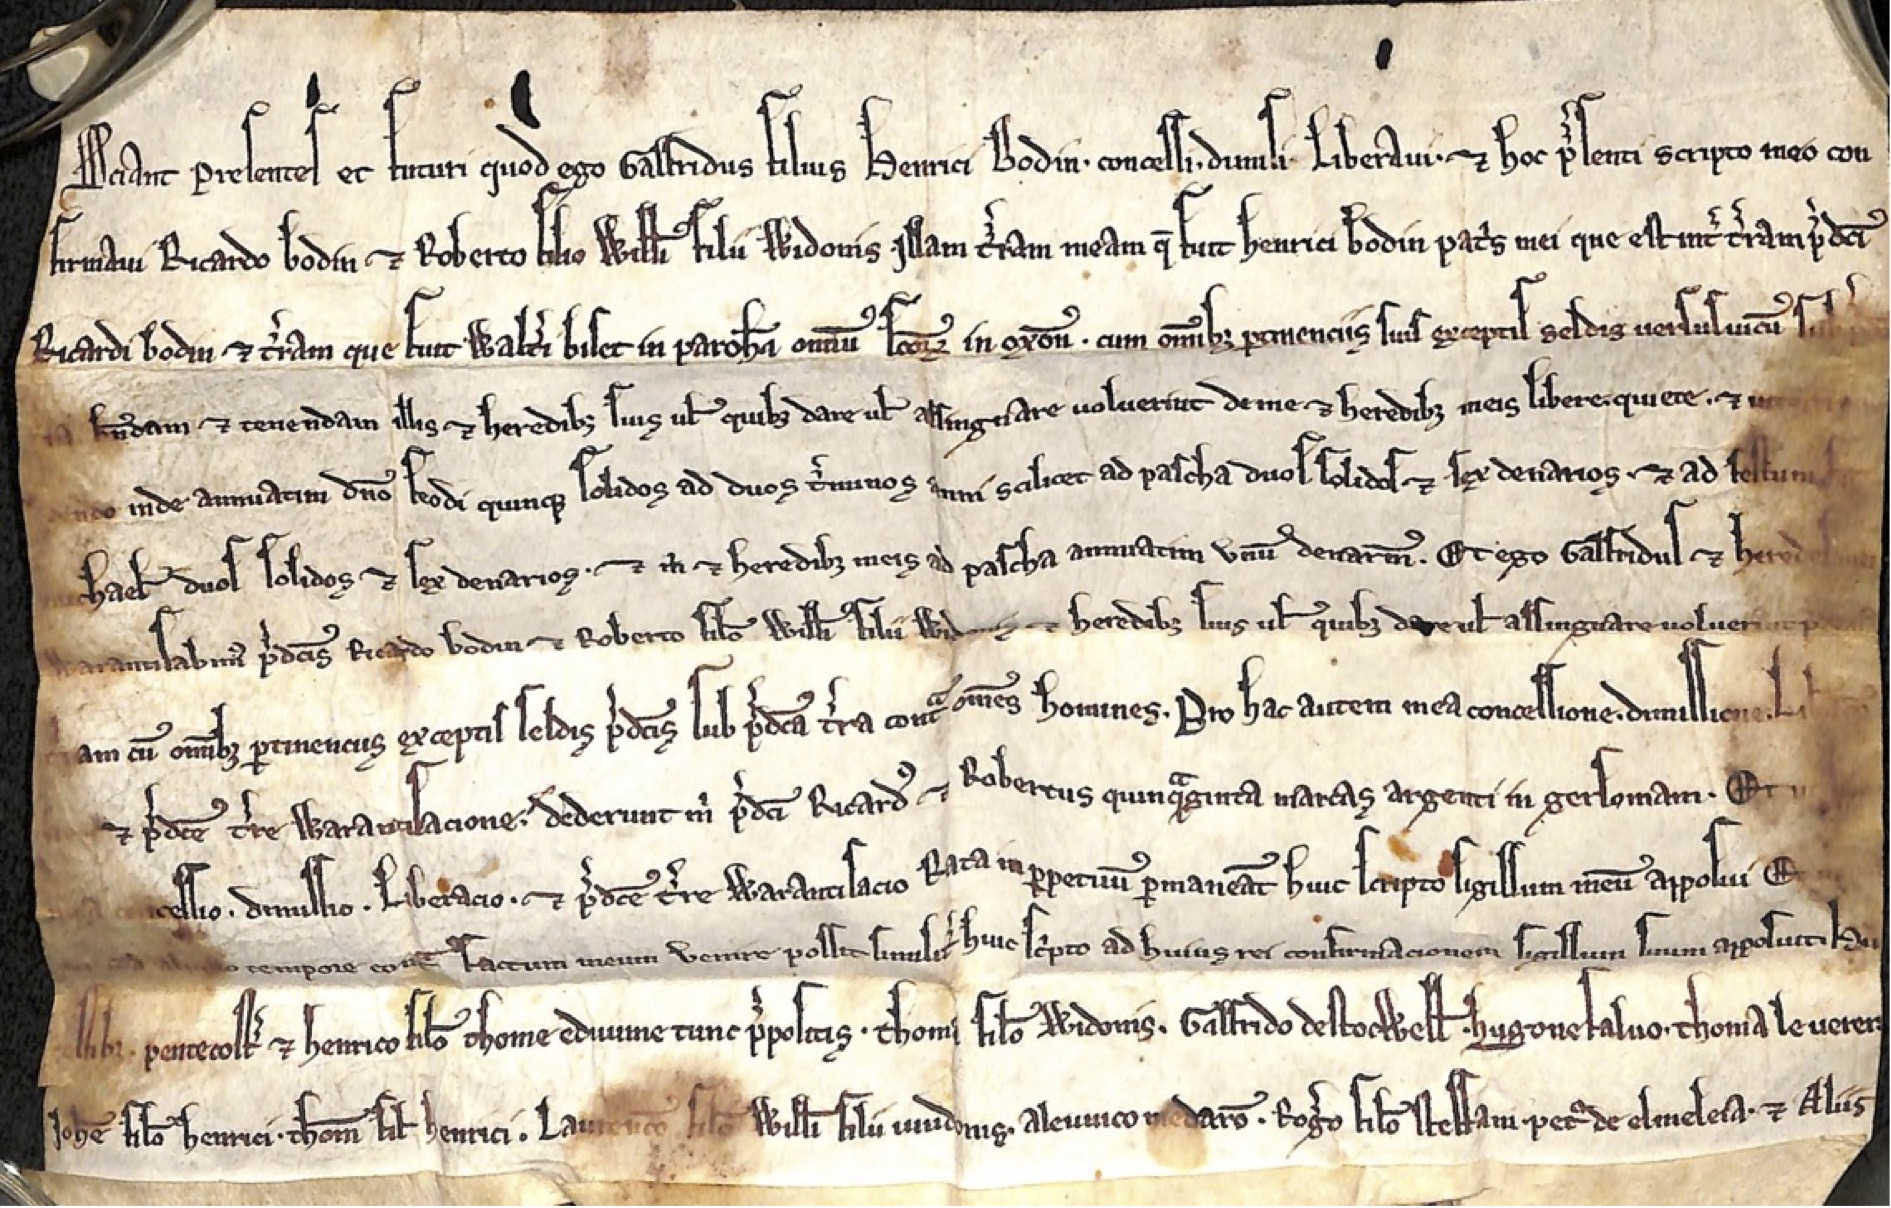 Sciant presentes et futuri quod ego Galfridus filius Henrici Bodin. concessi. dimisi. Liberavi. ⁊ hoc p̄senti scripto meo con
firmavi Ricardo bodin ⁊ Roberto filio Willi filii Widonis illam t̄ram meam q̄ fuit henrici bodin pat̄s mei que est int̄ t̄ram p̄dc̄i
Ricardi bodin ⁊ t̄ram que fuit Walt̄i biset in paroh̄a om̄iū sc̄oꝝ in oxōn. cum om̄ibꝫ ꝑtinenciis suis exceptis seldis versus vicū sub
hn̄dam ⁊ tenendam illis ⁊ heredibꝫ suis ul̄ quibꝫ dare ul̄ assingnare voluerint de me ⁊ heredibꝫ meis libere. quiete. ⁊
inde annuatim dn̄o feodi quinqꝫ solidos ad duos t̄minos anni scilicet ad pascha duos solidos ⁊ sex denarios. ⁊ ad festum
michael̄ duos solidos ⁊ sex denarios. ⁊ m̄ ⁊ heredibꝫ meis ad pascha annuatim unū denariū. Et ego Galfridus ⁊ heredes
warantisabimꝰ p̄dc̄is Ricardo bodin ⁊ Roberto fil̄o Willi filii Widonis ⁊ heredibꝫ suis ul̄ quibꝫ dare ul̄ assingnare voluerint
t̄ram cū om̄ibꝫ ꝑtinenciis exceptis seldis p̄dc̄is sub p̄dc̄a t̄ra contᵃ om̄es homines. Pro hac autem mea concessione. dimissione.
⁊ p̄dc̄e t̄re Warantisacione. dederunt m̄ p̄dc̄i Ricardꝰ ⁊ Robertus quinqᵃginta marcas argenti in gersomam. Et
concessio. dimissio. Liberacio. ⁊ p̄dc̄e t̄re Warantisacio Rata in ꝑpetuū ꝑmaneat̄ huic scripto sigillum meū apposui Et
tempore contᵃ factum meum venire possit simil̄r huic sc̄pto ad huius rei confirmacionem sigillum suum apposuit
testibꝫ. pentecost̄ ⁊ henrico fil̄o thome edwine tunc p̄positis. thoma fil̄o Widonis. Galfrido de stocwell̄. hugone saluo. thoma le verer
Joh̄e fil̄o henrici. thom̄ fil̄ henrici. Laurencō fil̄o Willi filii widonis. Rog̃o fil̄o stephani. pet̃ de elmeleia. ⁊ Aliis